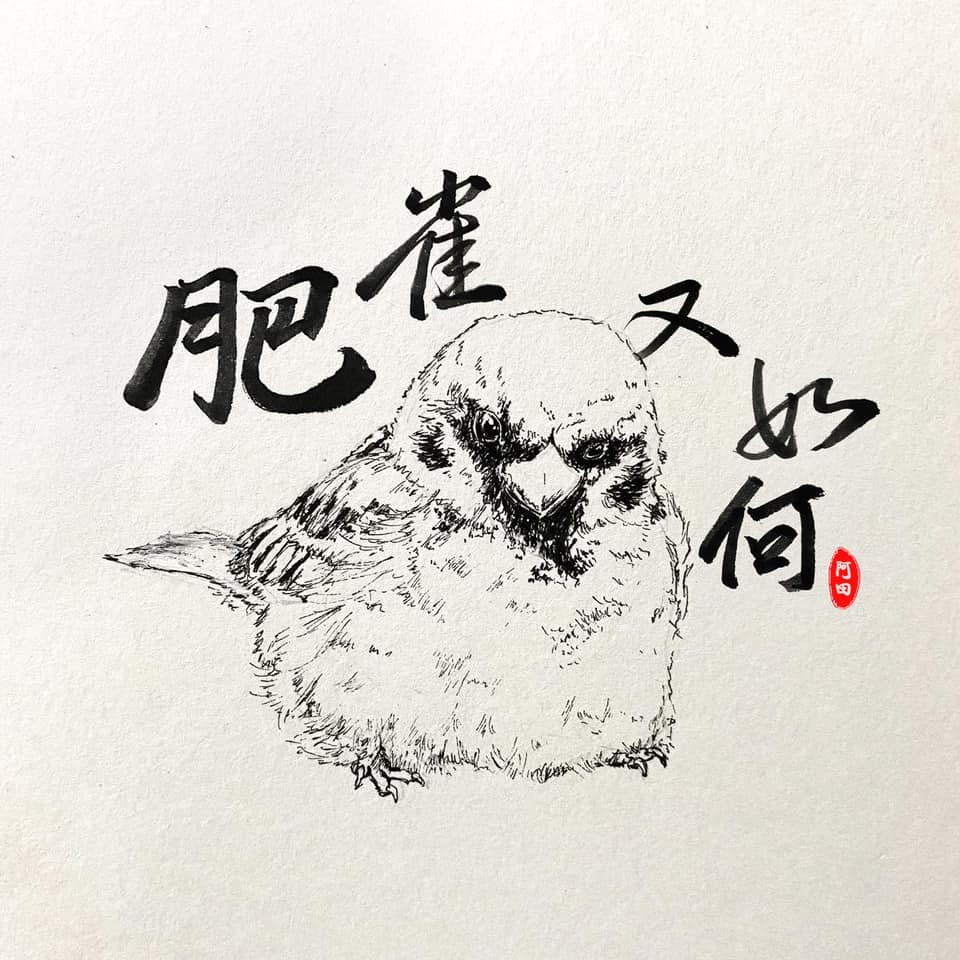 肥雀又如何
阿田